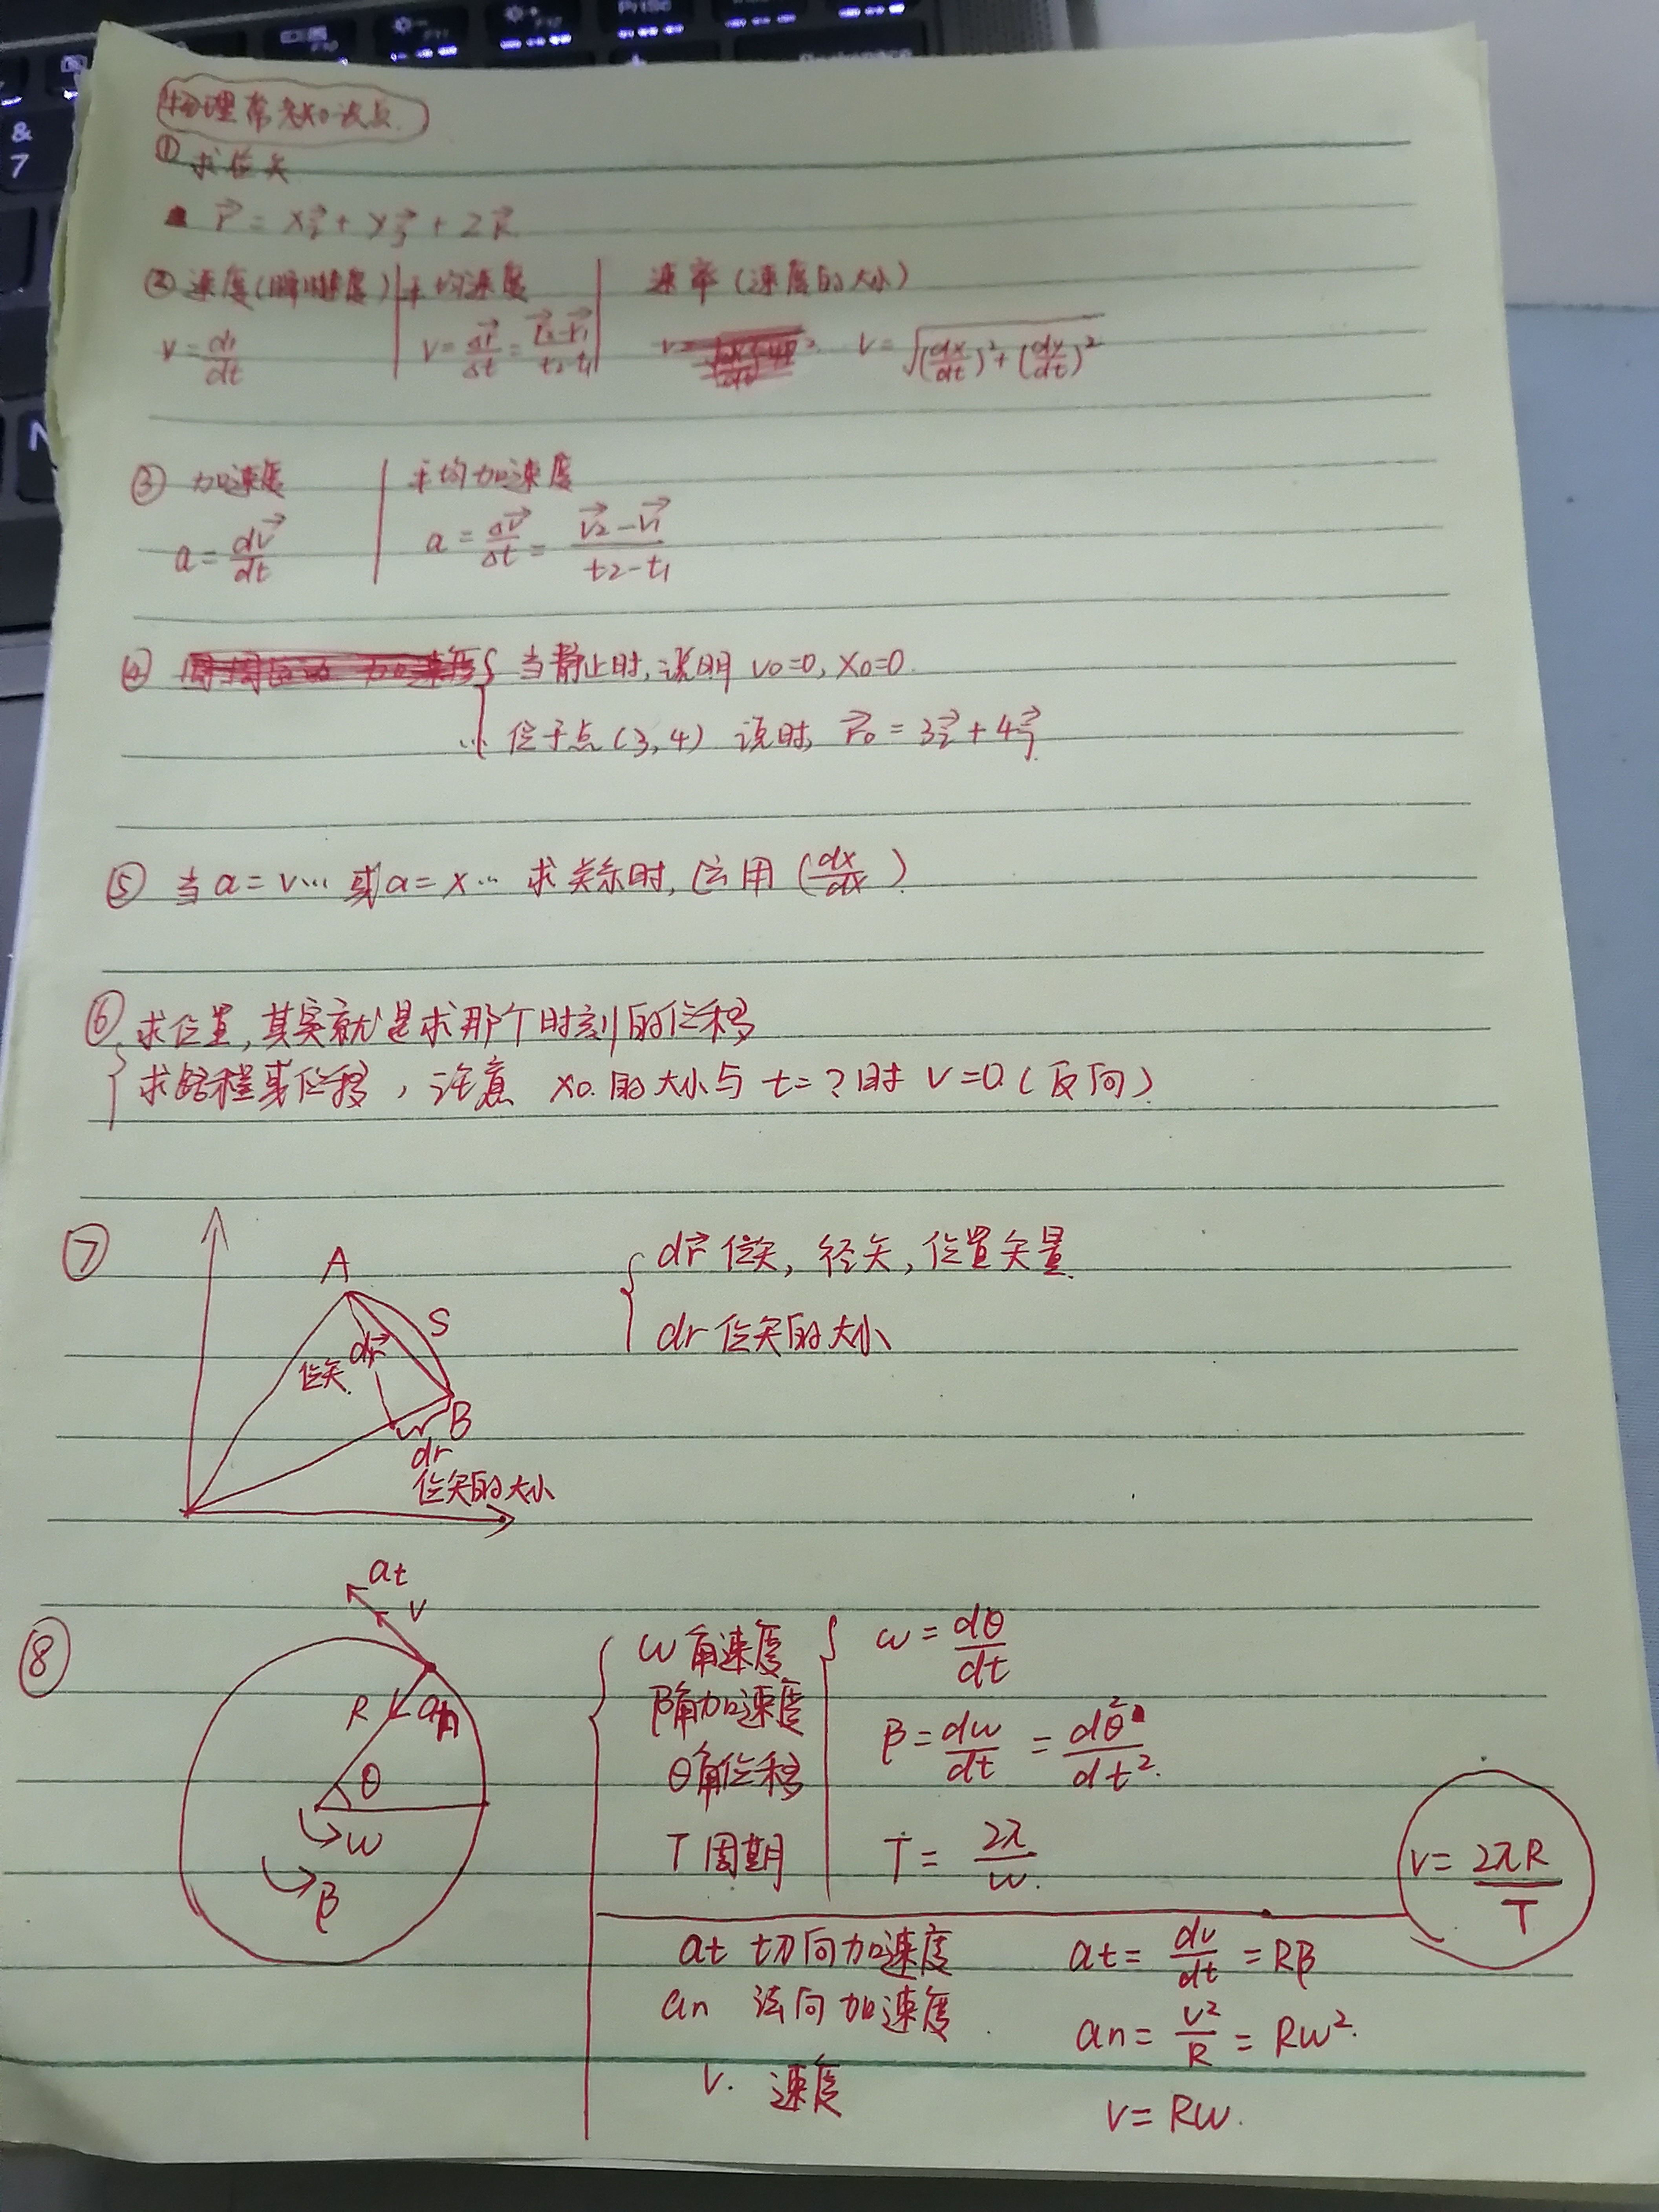 物理常考知识点
① 求位矢
r⃗ = xi⃗ + yj⃗ + zk⃗
② 速度(瞬时速度) | 平均速度 | 速率 (速度的大小)
v = dr/dt | v = Δr⃗/Δt = (r⃗2 - r⃗1)/(t2 - t1) | v = √((dx/dt)² + (dy/dt)²)
③ 加速度 | 平均加速度
a = dv⃗/dt | a = Δv⃗/Δt = (v⃗2 - v⃗1)/(t2 - t1)
④ 当静止时, 说明 v0=0, x0=0.
位于点 (3, 4) 说时, r⃗0 = 3i⃗ + 4j⃗.
⑤ 当 a = v… 或 a = x… 求关系时, 应用 (dx/dx)
⑥ 求位置, 其实就是求那个时刻的位移
求路程或位移, 注意 x0. 的大小与 t=? 时 v=0. (反向)
⑦ A
S
dr⃗
位矢.
B
dr
位矢的大小
dr⃗ 位矢, 径矢, 位置矢量
dr 位矢的大小
⑧ at
v
R
an
θ
w
β
w 角速度 w = dθ/dt
β角加速度 β = dw/dt = dθ²/dt².
θ角位移
T 周期 T = 2π/w.
v = 2πR/T
at 切向加速度 at = dv/dt = Rβ
an 法向加速度. an = v²/R = Rw².
v. 速度 v = Rw.
&
7
N
F10
F11
F12
PrtSc